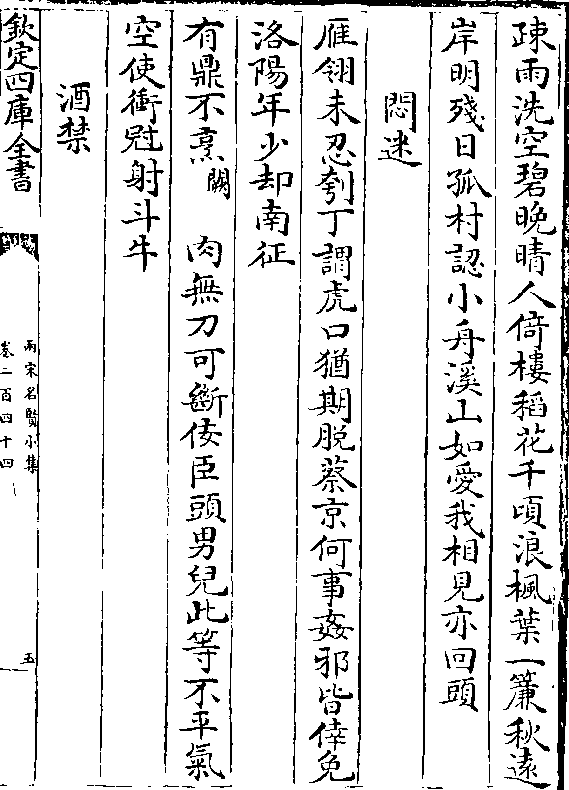 疎雨洗空碧晚晴人倚樓稻花千頃浪楓葉一簾秋遠
岸明殘日孤村認小舟溪山如愛我相見亦回頭
悶迷
雁翎未忍刳丁謂虎口猶期脫蔡京何事姦邪皆倖免
洛陽年少却南征
有鼎不烹闕　肉無刀可斷佞臣頭男兒此等不平氣
空使衝冠射斗牛
酒禁
欽定四庫全書
兩宋名賢小集
卷二百四十四
五